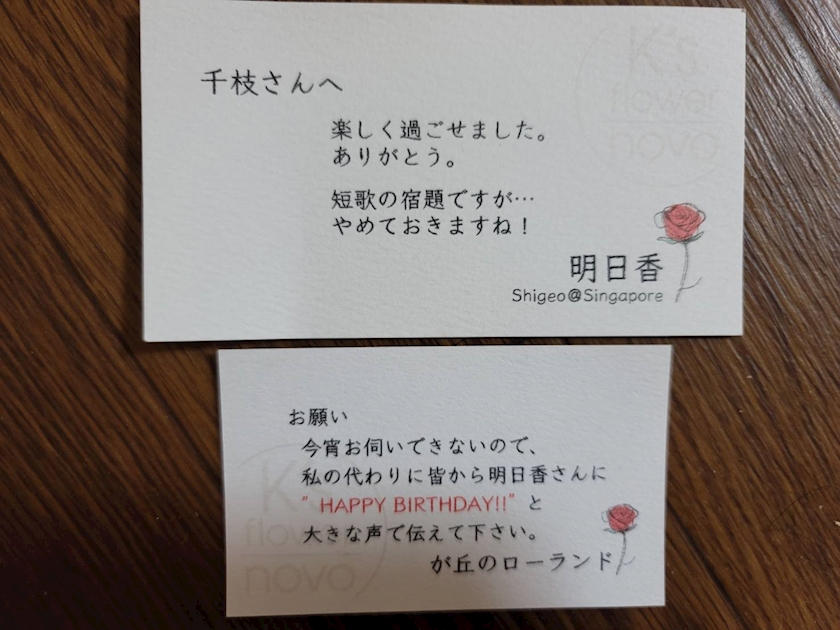 K's
flower
novo
千枝さんへ
楽しく過ごせました。
ありがとう。
短歌の宿題ですが…
やめておきますね！
明日香
Shigeo@Singapore
お願い
今宵お伺いできないので、
私の代わりに皆から明日香さんに
" HAPPY BIRTHDAY!!" と
大きな声で伝えて下さい。
が丘のローランド
K's
flower
novo